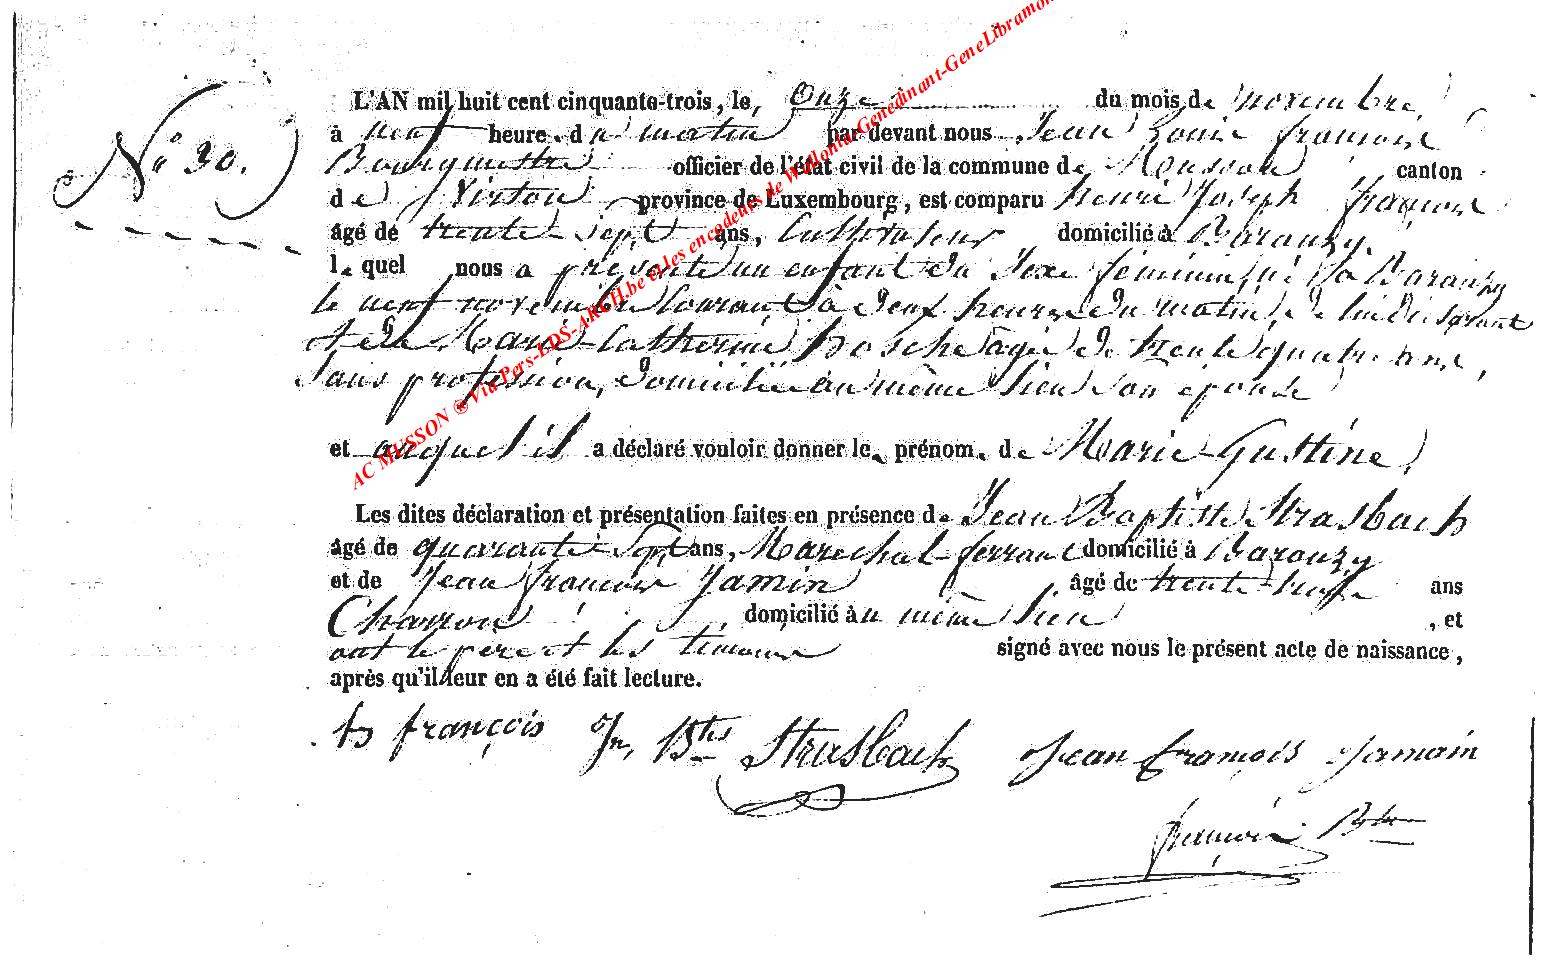 N° 30.
L'AN mil huit cent cinquante-trois, le, Onze du mois de novembre
à neuf heure. du matin par devant nous Jean Louis françois
Bourguestre officier de l'état civil de la commune de Musson canton
de Virton province de Luxembourg, est comparu henri Joseph françois
âgé de trente-sept ans, Cultivateur domicilié à Baranzy.
lequel nous a présenté un enfant du Sexe féminin, né à Baranzy
le neuf novembre Courant à deux heures du matin, de lui déclarant
et de Marie Catherine hosch âgée de trente quatre ans,
Sans profession, domiciliée au même lieu son épouse
et auquel il a déclaré vouloir donner le. prénom. de Marie Justine.
Les dites déclaration et présentation faites en présence de Jean Baptiste Strasbach
âgé de quarante Sept ans, Maréchal ferrant domicilié à Baranzy
et de Jean françois Jamin âgé de trente-neuf ans
Charron domicilié àu même lieu , et
ont le père et les témoins signé avec nous le présent acte de naissance,
après qu'il leur en a été fait lecture.
h françois Jn Bte Strasbach Jean françois Jamain
françois Bstre
AC MUSSON @ Via Pers-LDS-ARCH.be et les encodeurs de Wallonia-Genedinant-GeneLibramon